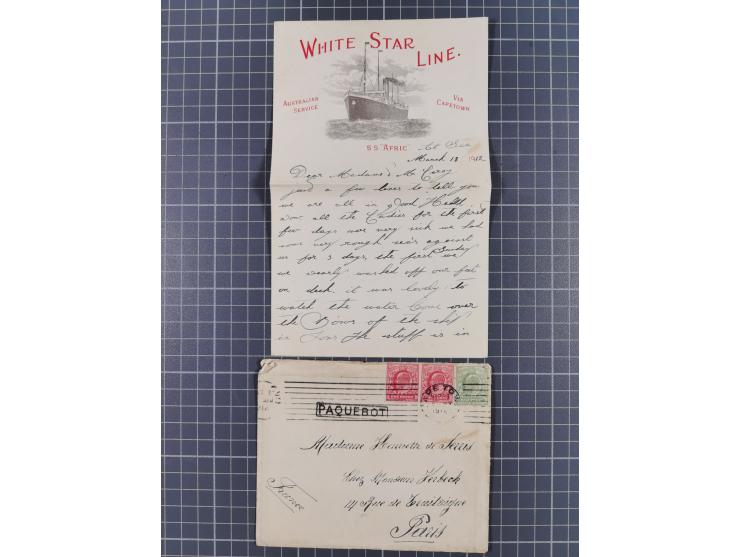 WHITE STAR LINE.
AUSTRALIAN SERVICE
VIA CAPETOWN
S S "AFRIC" At Sea
March 18 1912
Dear Madame & Mr
just a few lines to tell you
we are all in good Health
all the Ladies for the first
few days were very sick we had
some very rough seas against
us for 3 days, the first Sunday we
we nearly washed off our feet
on deck. it was lovely to
watch the water Come over
the Bows of the ship
in the stuff is in
PAQUEBOT
Madame Henriette de Serris
Chez Monsieur Verbeck
14 Rue de
Paris
France